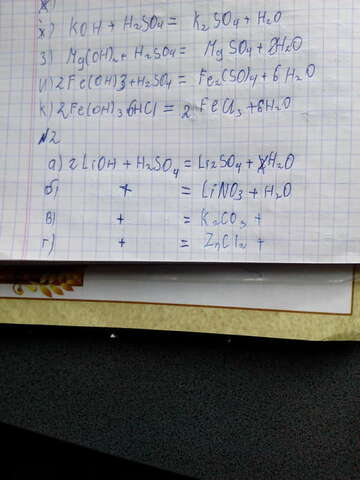 ж) KOH + H₂SO₄ = K₂SO₄ + H₂O
з) Mg(OH)₂ + H₂SO₄ = MgSO₄ + 2H₂O
и) 2Fe(OH)3 + H₂SO₄ = Fe₂(SO)₄ + 6H₂O
к) 2Fe(OH)₃ 6HCl = 2 FeCl₃ + 6H₂O
№2
а) 2LiOH + H₂SO₄ = Li₂SO₄ + H₂O
б) + = LiNO₃ + H₂O
в) + = K₂CO₃ +
г) + = ZnCl₂ +